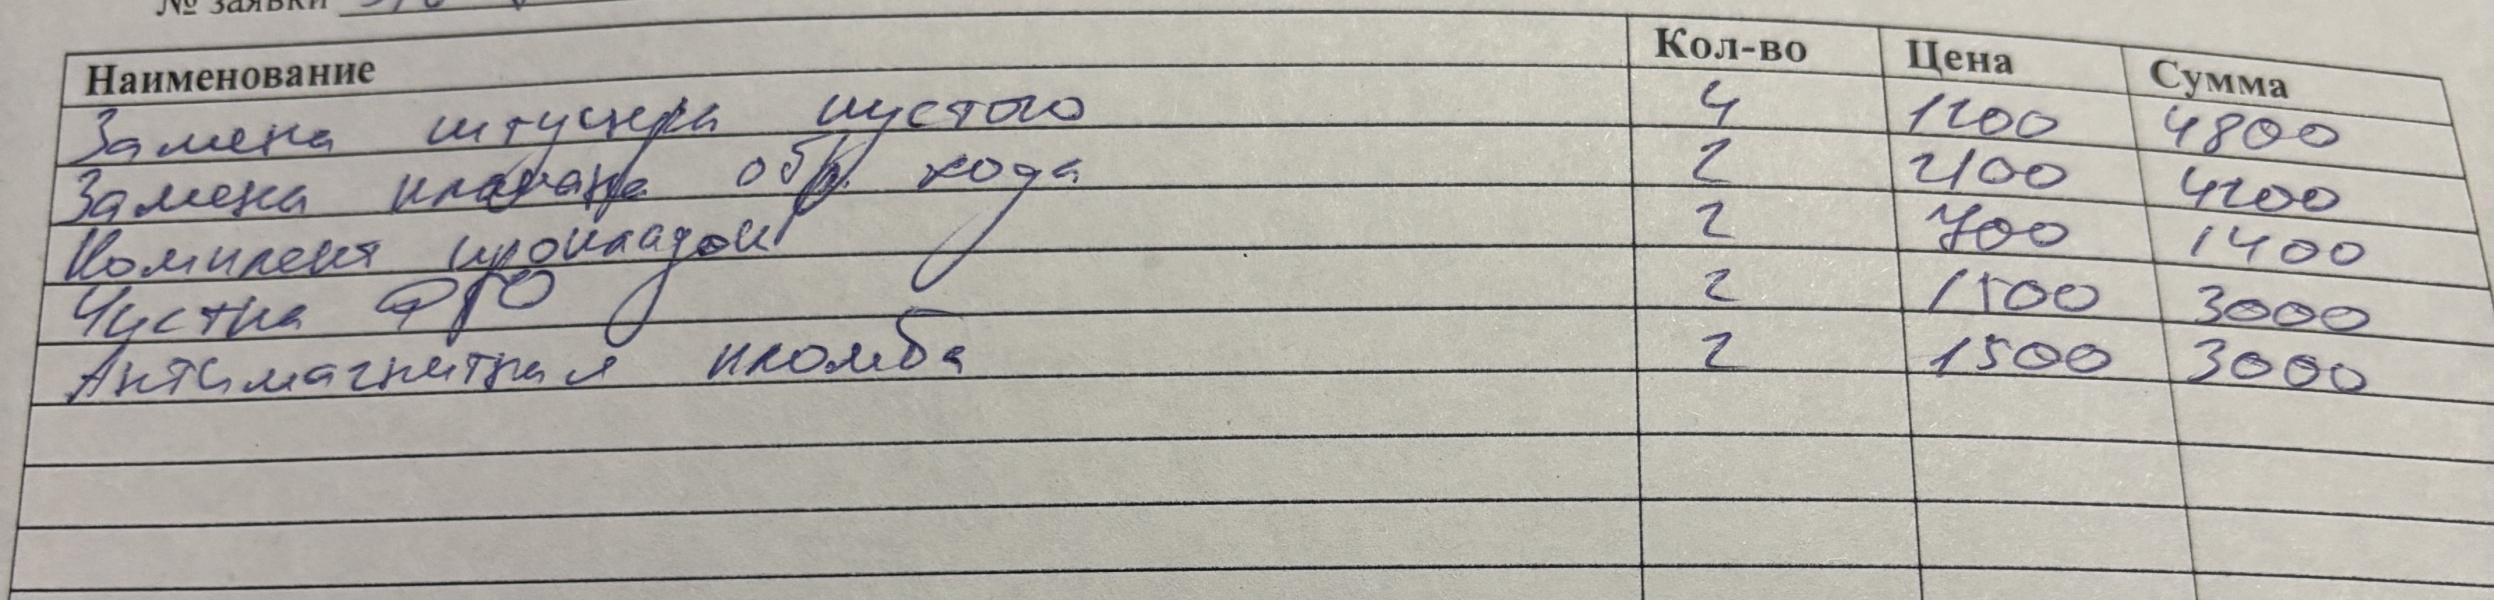 № заявки
Наименование Кол-во Цена Сумма
Замена штуцера пустого 4 1200 4800
Замена клапана обр. хода 2 2100 4200
Комплект прокладок 2 700 1400
Чистка ФГО 2 1500 3000
Антимагнитная пломба 2 1500 3000